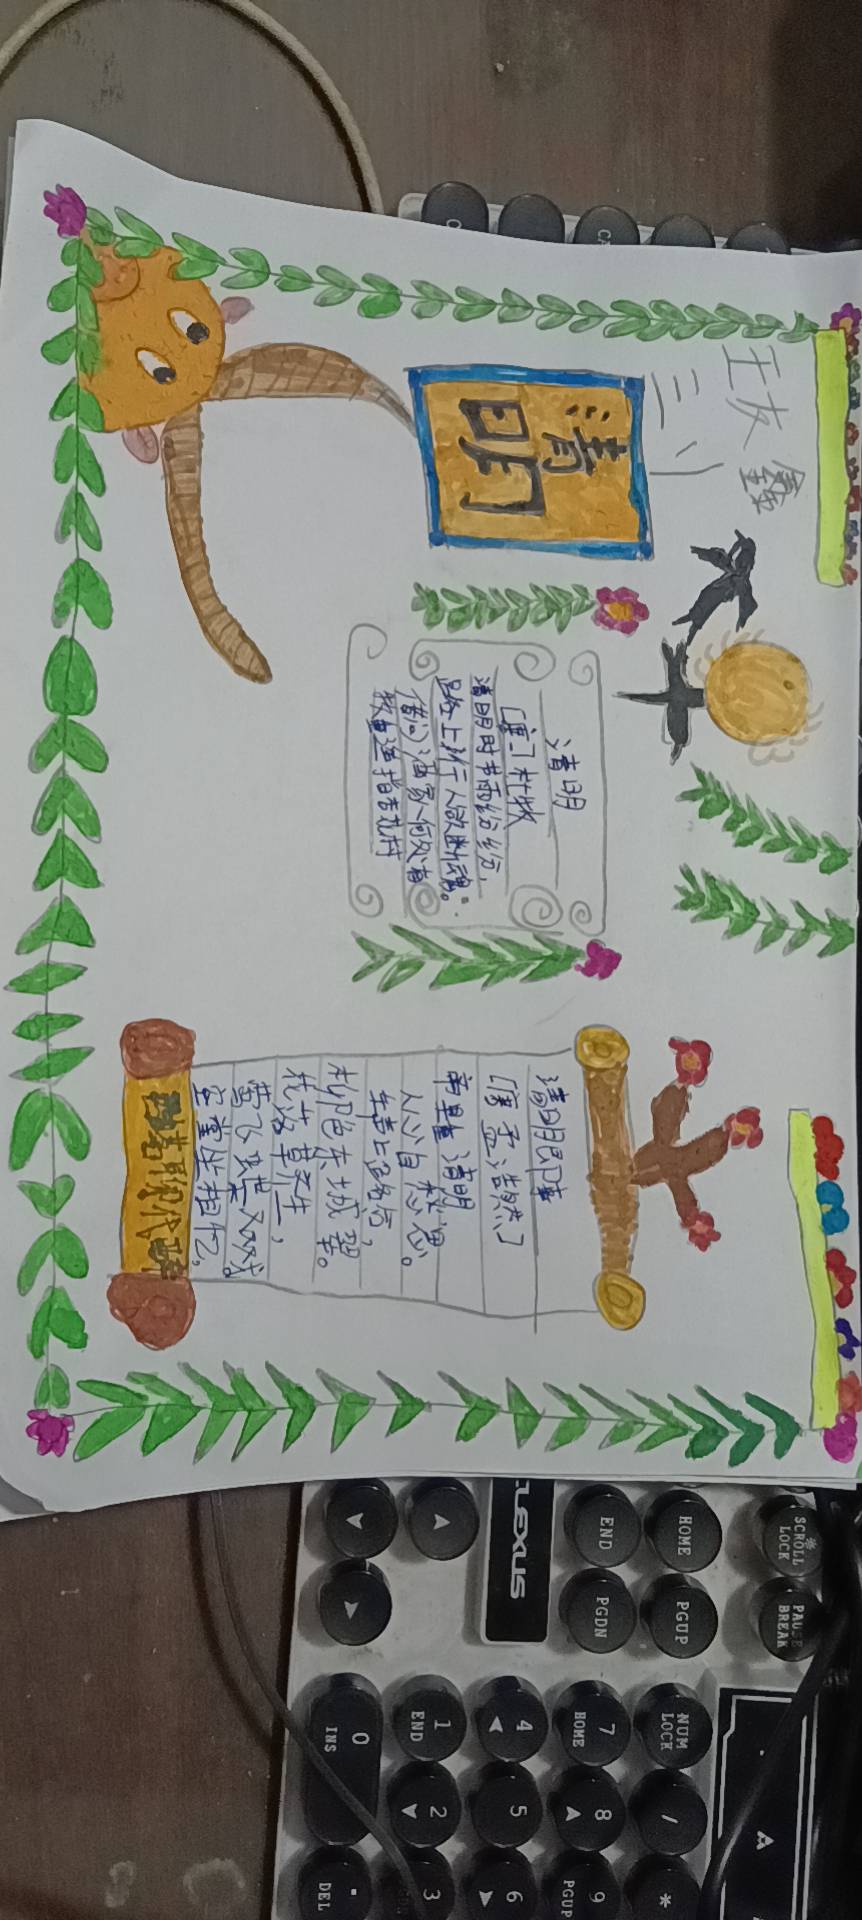 王友鑫
三
清明
清明
[唐]杜牧
清明时节雨纷纷,
路上行人欲断魂。
借问酒家何处有
牧童遥指杏花村
清明即事
[唐 孟浩然]
帝里重清明
人心自愁思。
车声上路合,
柳色东城翠。
花落草齐生,
莺飞蝶双戏。
空堂坐相忆,
酌茗聊代醉
SCROLL LOCK
PAUSE BREAK
HOME
PGUP
END
PGDN
LEXUS
NUM LOCK
/
*
7 HOME
8
9 PGUP
4
5
6
1 END
2
3
0 INS
. DEL
A